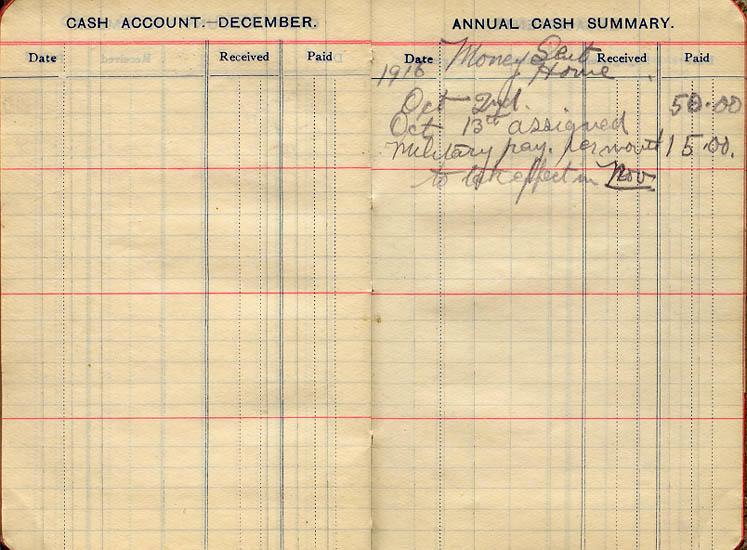 CASH ACCOUNT.—DECEMBER.
Date Received Paid
ANNUAL CASH SUMMARY.
Date Received Paid
1916 Money Sent
Home.
Oct 2nd. 50.00
Oct 13th assigned
Military pay. per month 15.00.
to take effect in Nov